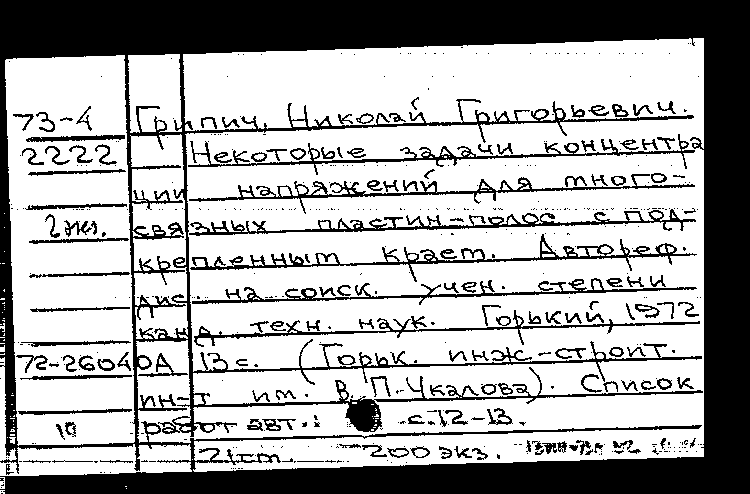 73-4 Грипич, Николай Григорьевич.
2222 Некоторые задачи концентра
ции напряжений для много-
2 экз. связных пластин-полос с под-
крепленным краем. Автореф.
дис. на соиск. учен. степени
канд. техн. наук. Горький, 1972
72-26040А 13 с. (Горьк. инж.-строит.
ин-т им. В.П. Чкалова). Список
10 работ авт.: с. 12-13.
200 экз.